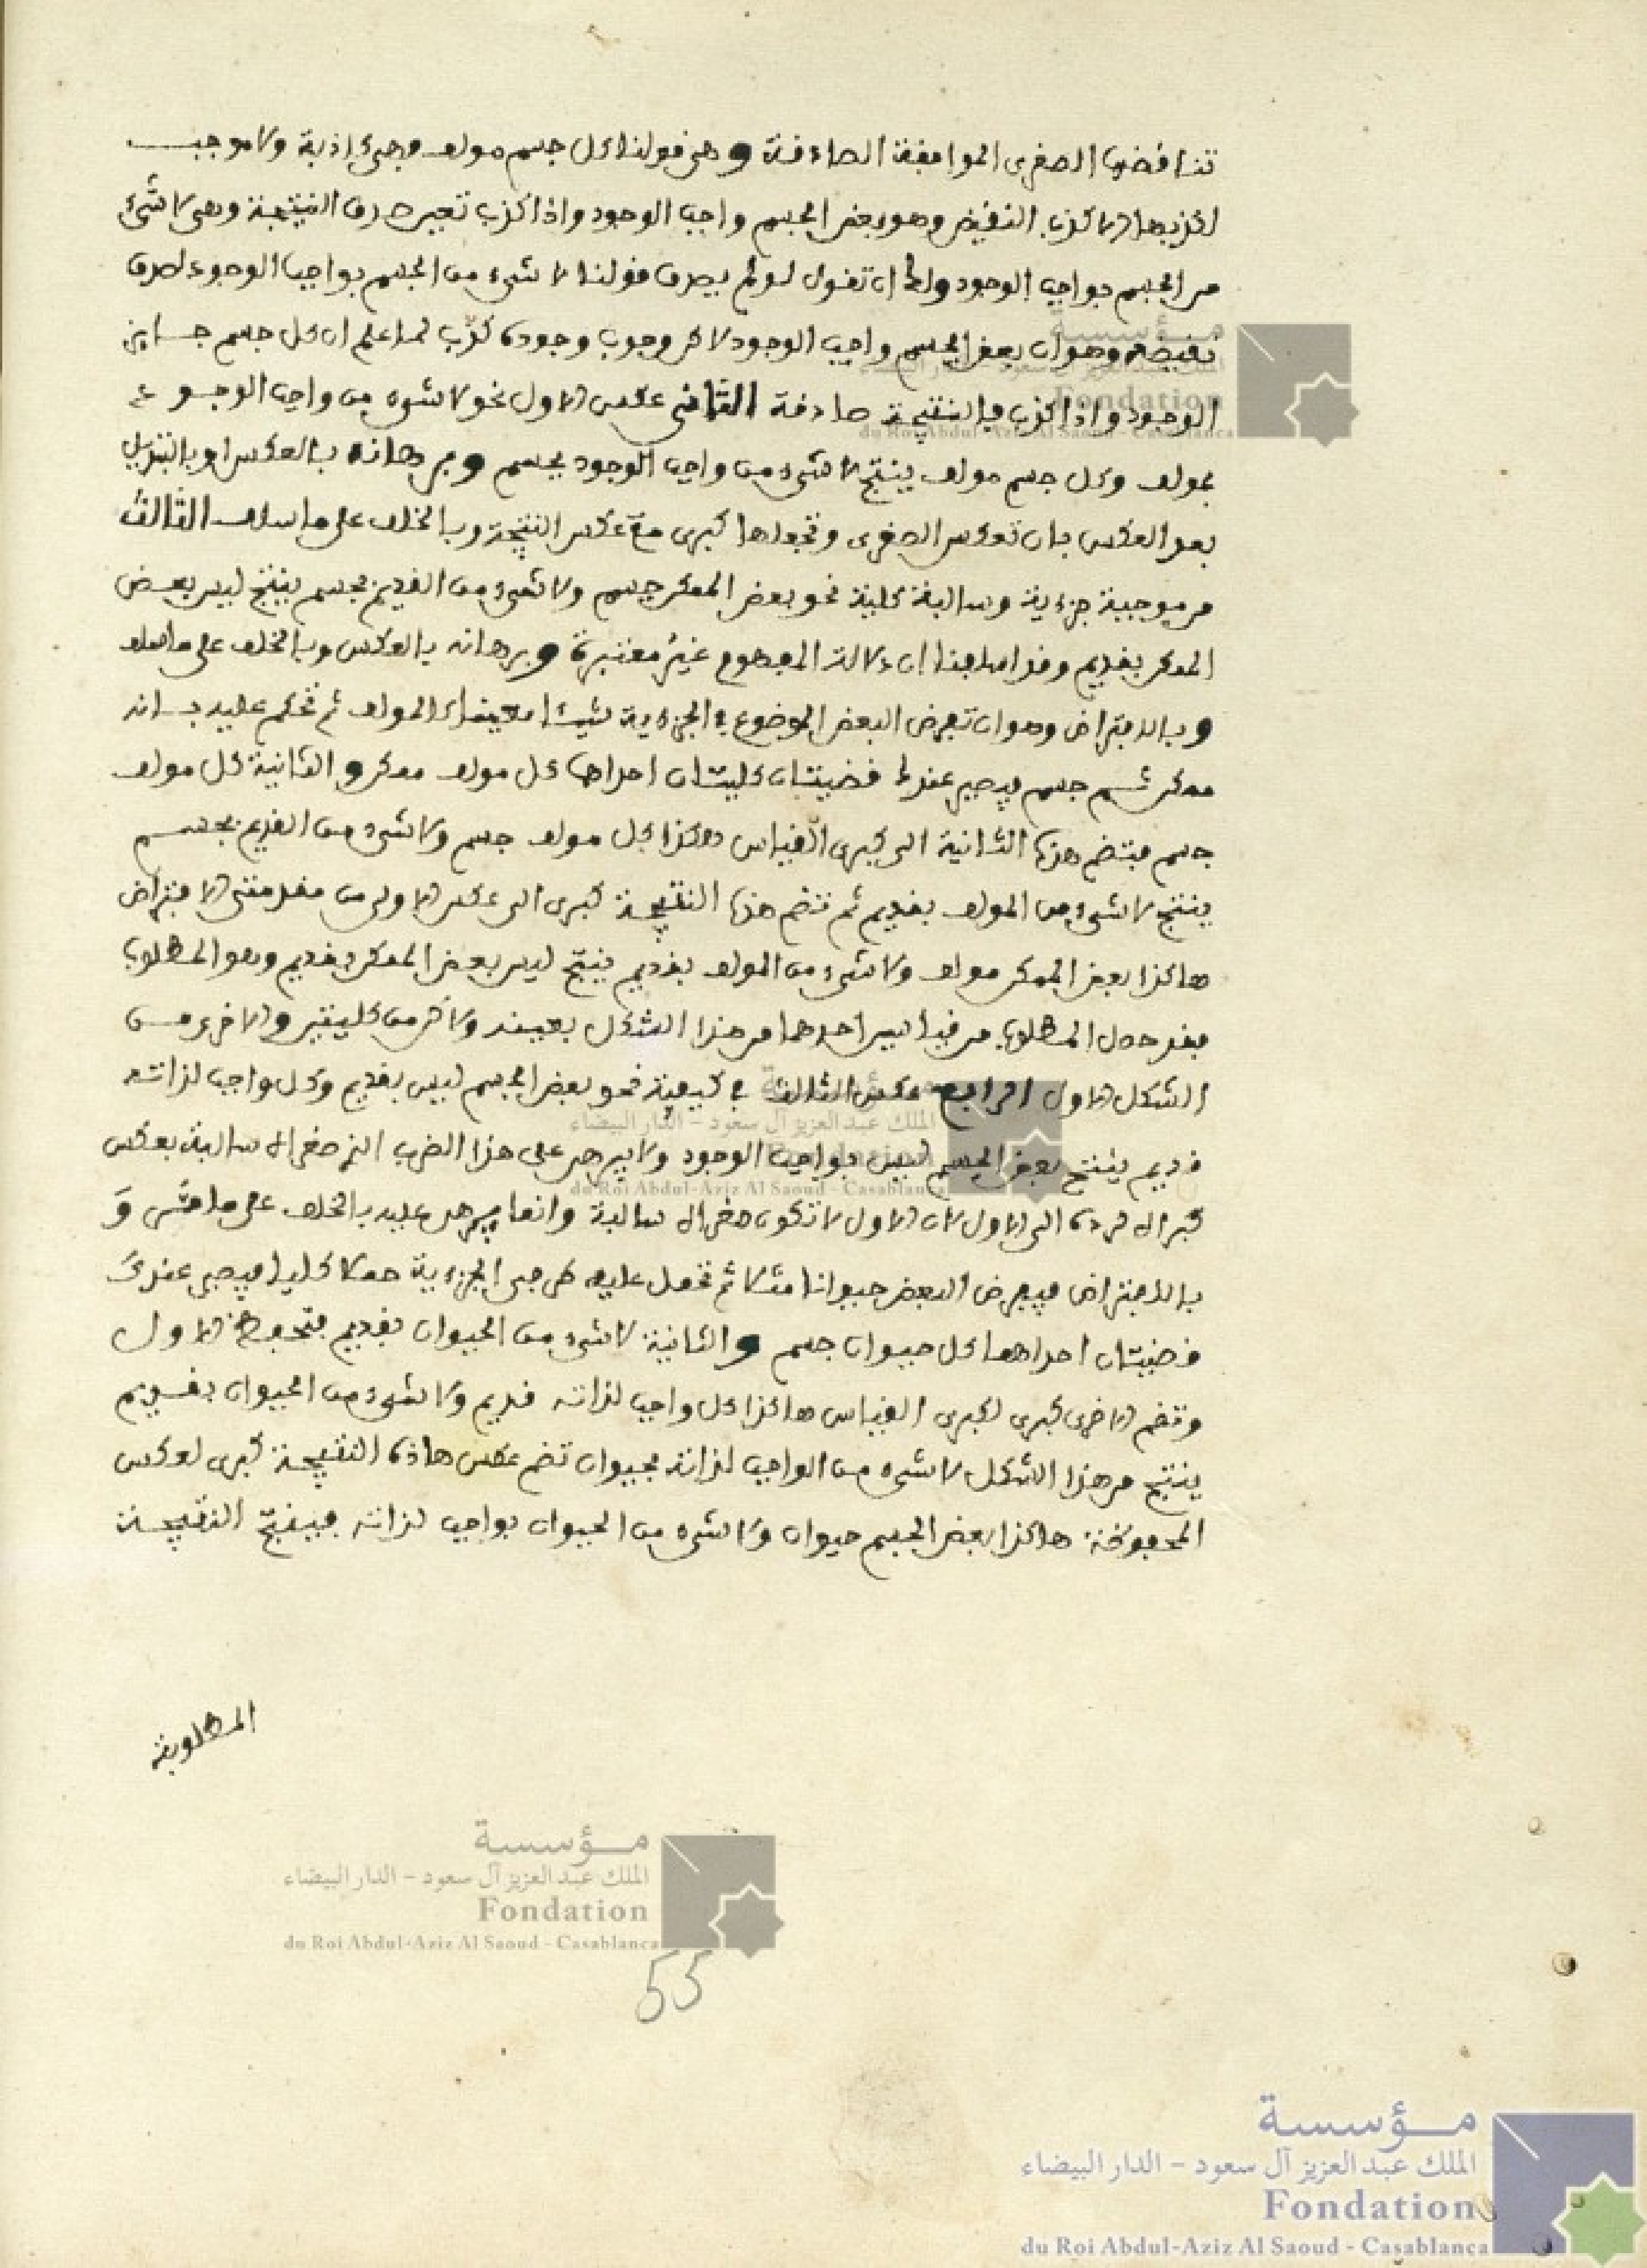 تناقضها الصغرى الموافقة الصادقة وهي قولنا كل جسم مولف فهي كاذبة ولا موجب
لكذبها الا كذب النقيض وهو بعض الجسم واجب الوجود واذا كذب تعين صدق النتيجة وهي لا شيء
من الجسم بواجب الوجود ولك ان تقول لو لم يصدق قولنا لا شيء من الجسم بواجب الوجود لصدق
نقيضه وهو ان بعض الجسم واجب الوجود لاكن وجوب وجوده كذب لما علم ان كل جسم جايز
الوجود واذا كذب فالنتيجة صادقة الثاني عكس الاول نحو لا شيء من واجب الوجود
بمولف وكل جسم مولف ينتج لا شيء من واجب الوجود بجسم وبرهانه بالعكس او بالتبديل
بعد العكس بان تعكس الصغرى وتجعلها كبرى مع عكس النتيجة وبالخلف على ما سلف الثالث
من موجبة جزءية وسالبة كلية نحو بعض الممكن جسم ولا شيء من القديم بجسم ينتج ليس بعض
الممكن بقديم وقد اسلفنا ان دلالة المفهوم غير معتبرة وبرهانه بالعكس وبالخلف على ما سلف
وبالافتراض وهو ان تفرض البعض الموضوع في الجزءية شيئا معينا كالمولف ثم تحكم عليه بانه
ممكن ثم جسم فيصير عندك قضيتان كليتان احداهما كل مولف ممكن والثانية كل مولف
جسم فتضم هذه الثانية الى كبرى القياس هكذا كل مولف جسم ولا شيء من القديم بجسم
ينتج لا شيء من المولف بقديم ثم تضم هذه النتيجة كبرى الى عكس الاولى من مقدمتى الافتراض
هاكذا بعض الممكن مولف ولا شيء من المولف بقديم ينتج ليس بعض الممكن بقديم وهو المطلوب
فقد حصل المطلوب من قياسين احدهما من هذا الشكل بعينه ولاكن من كليتين والاخرى من
الشكل الاول الرابع عكس الثالث في كيفية نحو بعض الجسم ليس بقديم وكل واجب لذاته
قديم ينتج بعض الجسم ليس بواجب الوجود ولا يبرهن على هذا الضرب الذي صغراه سالبة بعكس
كبراه لرده الى الاول لان الاول لا تكون صغراه سالبة وانما يبرهن عليه بالخلف على ما مضى و
بالافتراض فيفرض البعض حيوانا مثلا ثم تحمل عليه طرفي الجزءية حملا كليا فيصير عندك
قضيتان احداهما كل حيوان جسم والثانية لا شيء من الحيوان بقديم فتحفظ الاول
وتضم الاخرى كبرى لكبرى القياس هاكذا كل واجب لذاته قديم ولا شيء من الحيوان بقديم
ينتج من هذا الشكل لا شيء من الواجب لذاته بحيوان تضم عكس هاذه النتيجة كبرى لعكس
المحفوظة هاكذا بعض الجسم حيوان ولا شيء من الحيوان بواجب لذاته فينتج النتيجة
المطلوبة
مؤسسة
الملك عبد العزيز آل سعود - الدار البيضاء
Fondation
du Roi Abdul-Aziz Al Saoud - Casablanca
55
مؤسسة
الملك عبد العزيز آل سعود - الدار البيضاء
Fondation
du Roi Abdul-Aziz Al Saoud - Casablanca